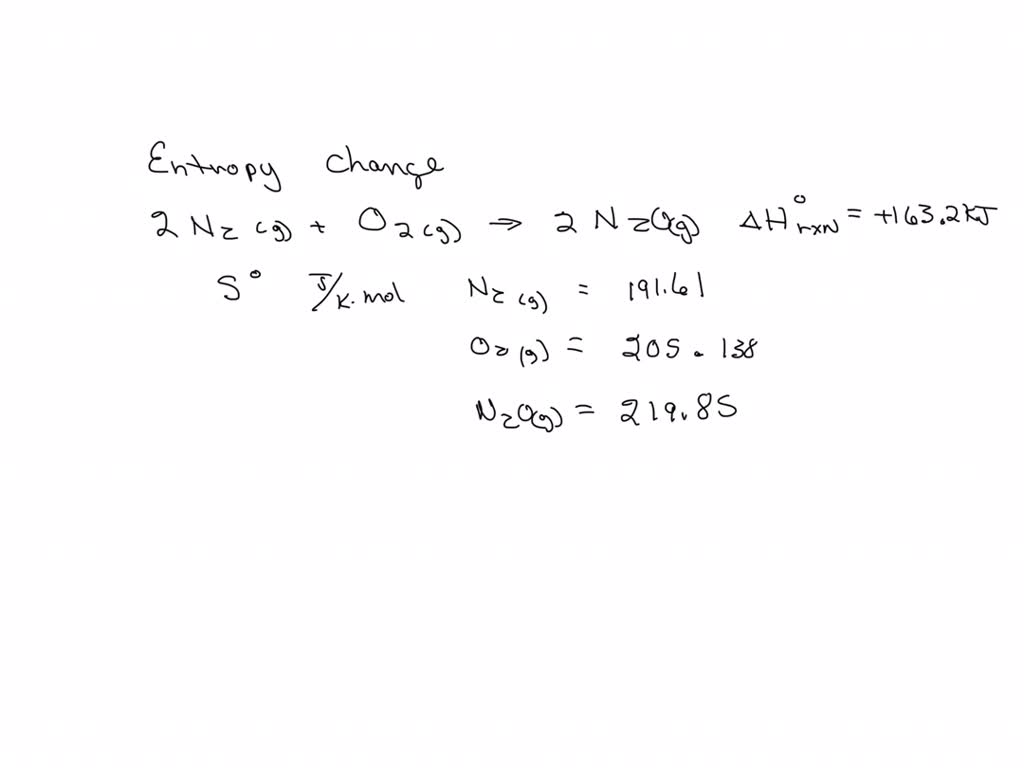 Entropy change
2 N₂ (g) + O₂ (g) → 2 N₂O(g) ΔH°rxn = +163.2 kJ
S° J/K·mol N₂ (g) = 191.61
O₂ (g) = 205.138
N₂O(g) = 219.85